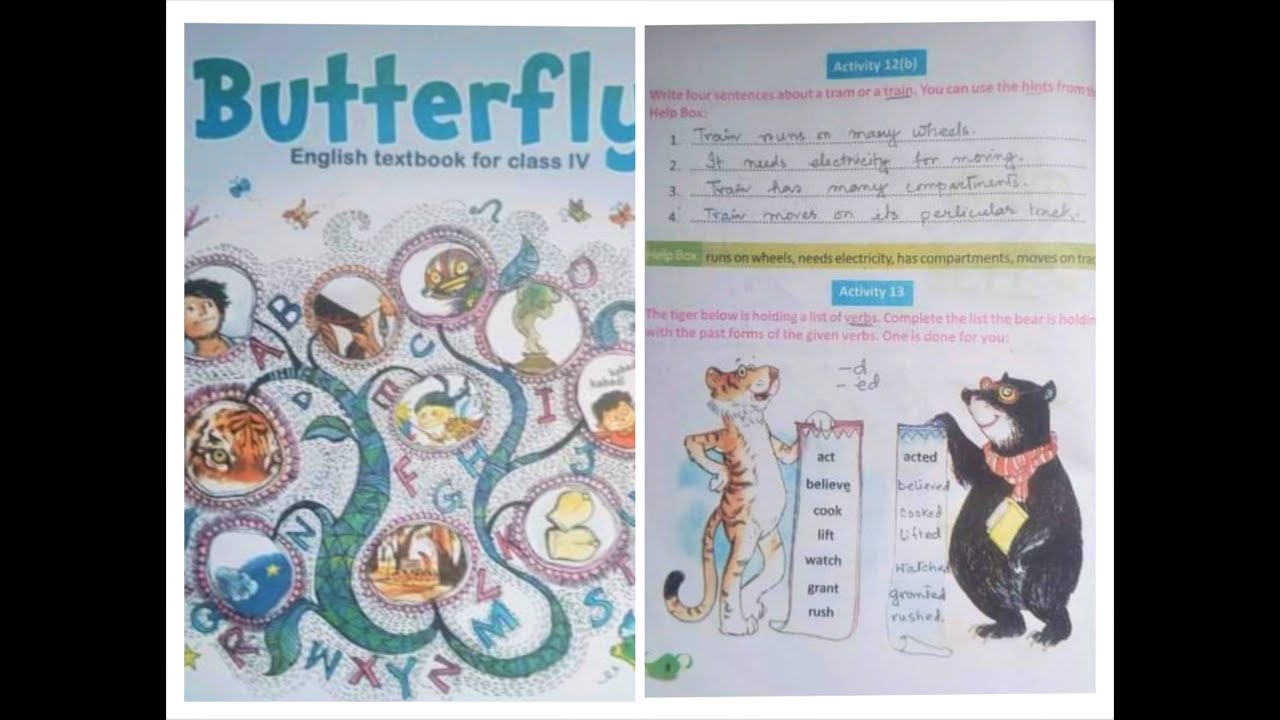 Butterfly
English textbook for class IV
A
B
C
D
E
F
G
H
I
J
K
L
M
N
O
Q
R
S
W
X
Y
Z
kabadi
Activity 12(b)
Write four sentences about a tram or a train. You can use the hints from
Help Box:
1. Train runs on many wheels.
2. It needs electricity for moving.
3. Train has many compartments.
4. Train moves on its perticular track.
Help Box: runs on wheels, needs electricity, has compartments, moves on
Activity 13
The tiger below is holding a list of verbs. Complete the list the bear is
with the past forms of the given verbs. One is done for you:
-d
-ed
act
believe
cook
lift
watch
grant
rush
acted
believed
cooked
Lifted
watched
granted
rushed.
8